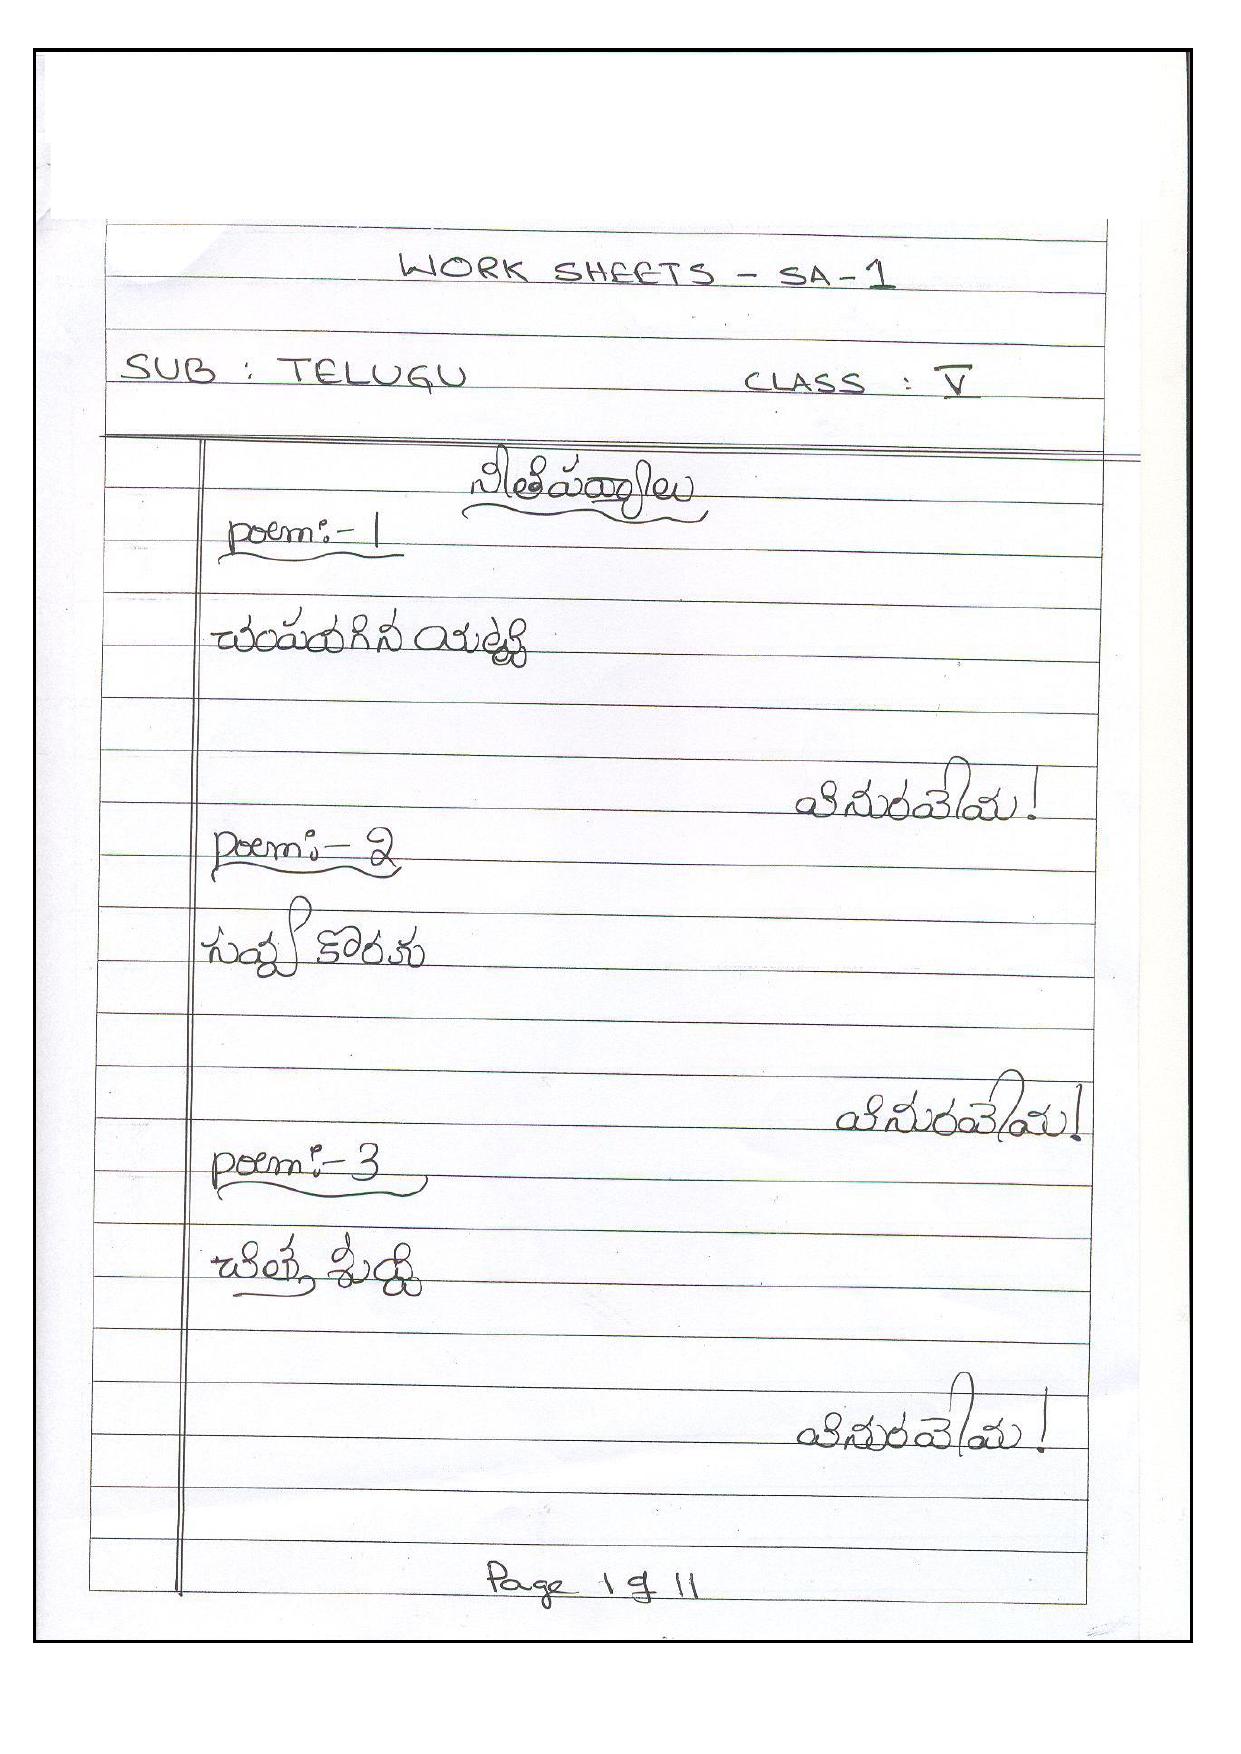 WORK SHEETS - SA-1
SUB : TELUGU CLASS : V
నీతిపద్యాలు
poem:-1
చంపదగిన యట్టి
వినురవేమ!
poem:-2
కొరకు
వినురవేమ!
poem:-3
చిత్త శుద్ధి
వినురవేమ!
Page 1 of 11